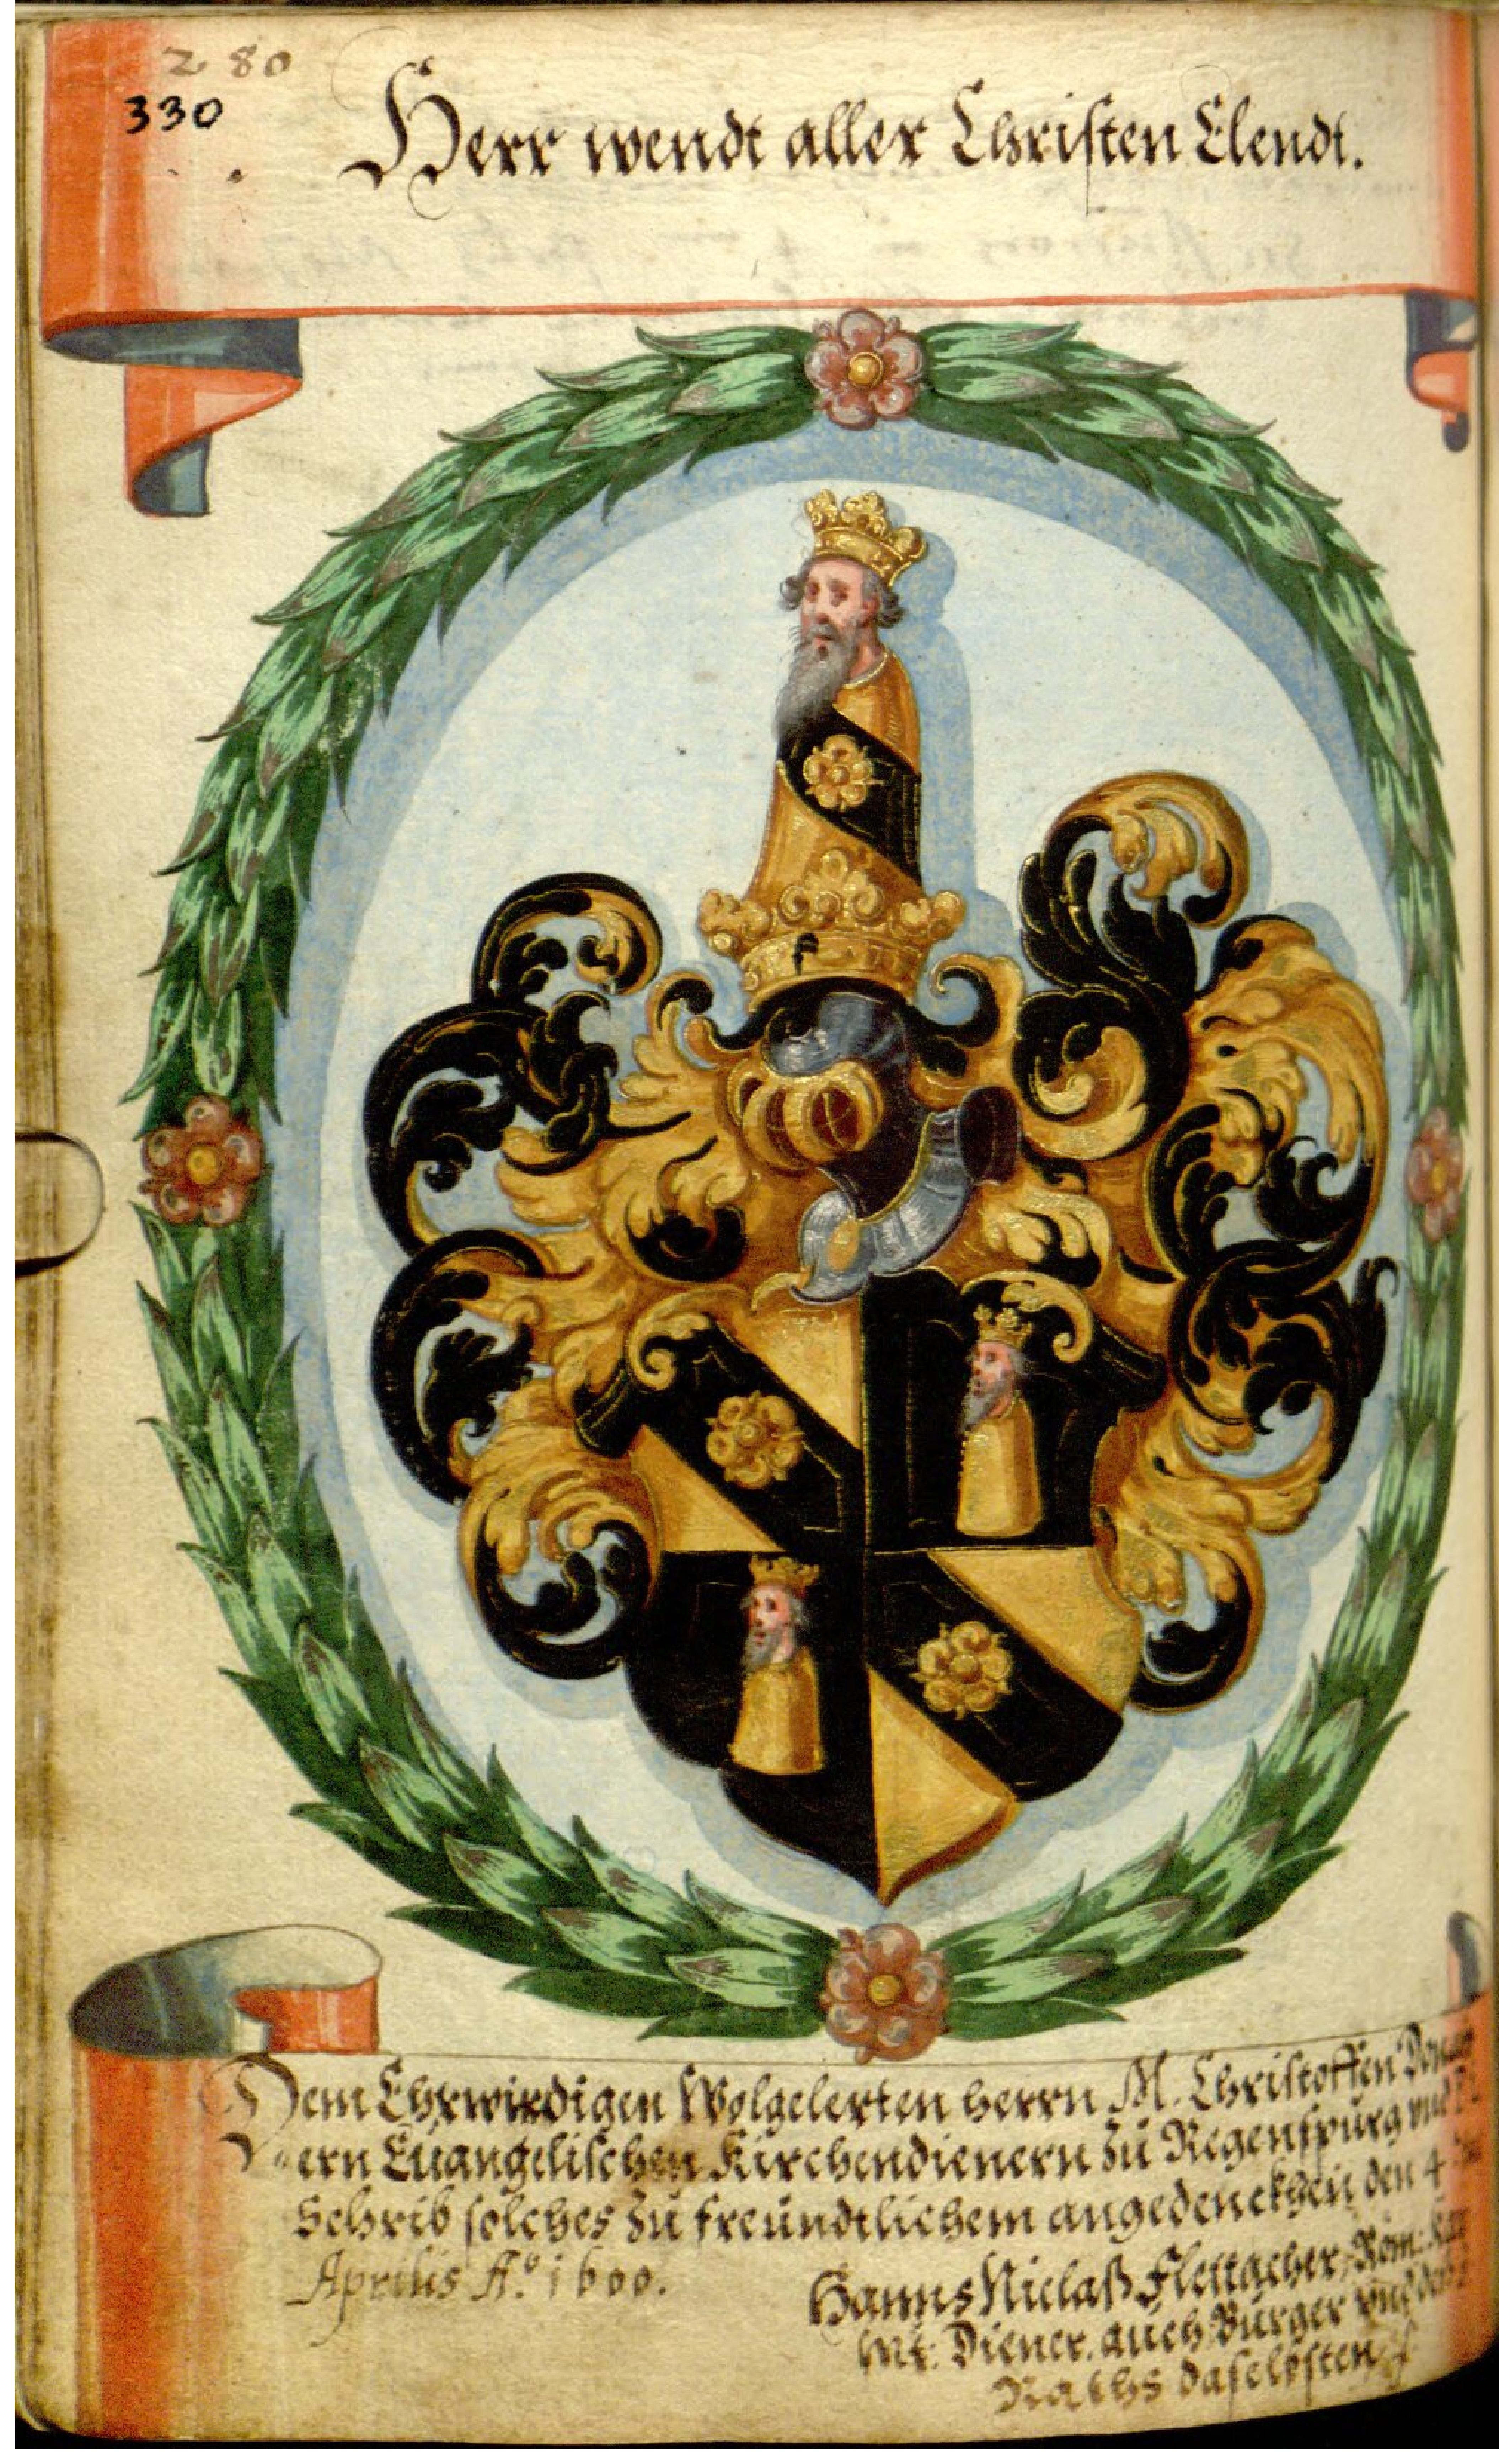 280
330
Herr wendt aller Christen Elendt.
F
Dem Ehrwirdigen Wolgelerten herrn M. Christoffen
ern Euangelischen Kirchendienern zu Regenspurg vnd
Schrib solches zu freundtlichem angedenckhen den 4
Aprilis Aº. 1600.
Hanns Niclaß Flettacher, Röm: Kay
Mt: Diener, auch Burger vnd des
Raths daselbsten